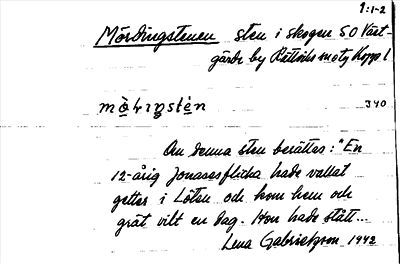 9:1-2
Mördingstenen sten i skogen SO Väst-
gärde by Rättviks
340
Om denna sten berättas: "En
12-årig Jonasesflicka hade vallat
getter i Lötsu och kom hem och
grät vilt en dag. Hon hade stått...
Lena Gabrielsson 1942